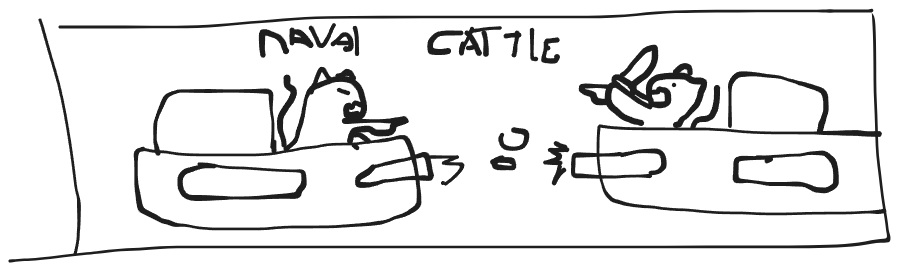 NAVAL CATTLE